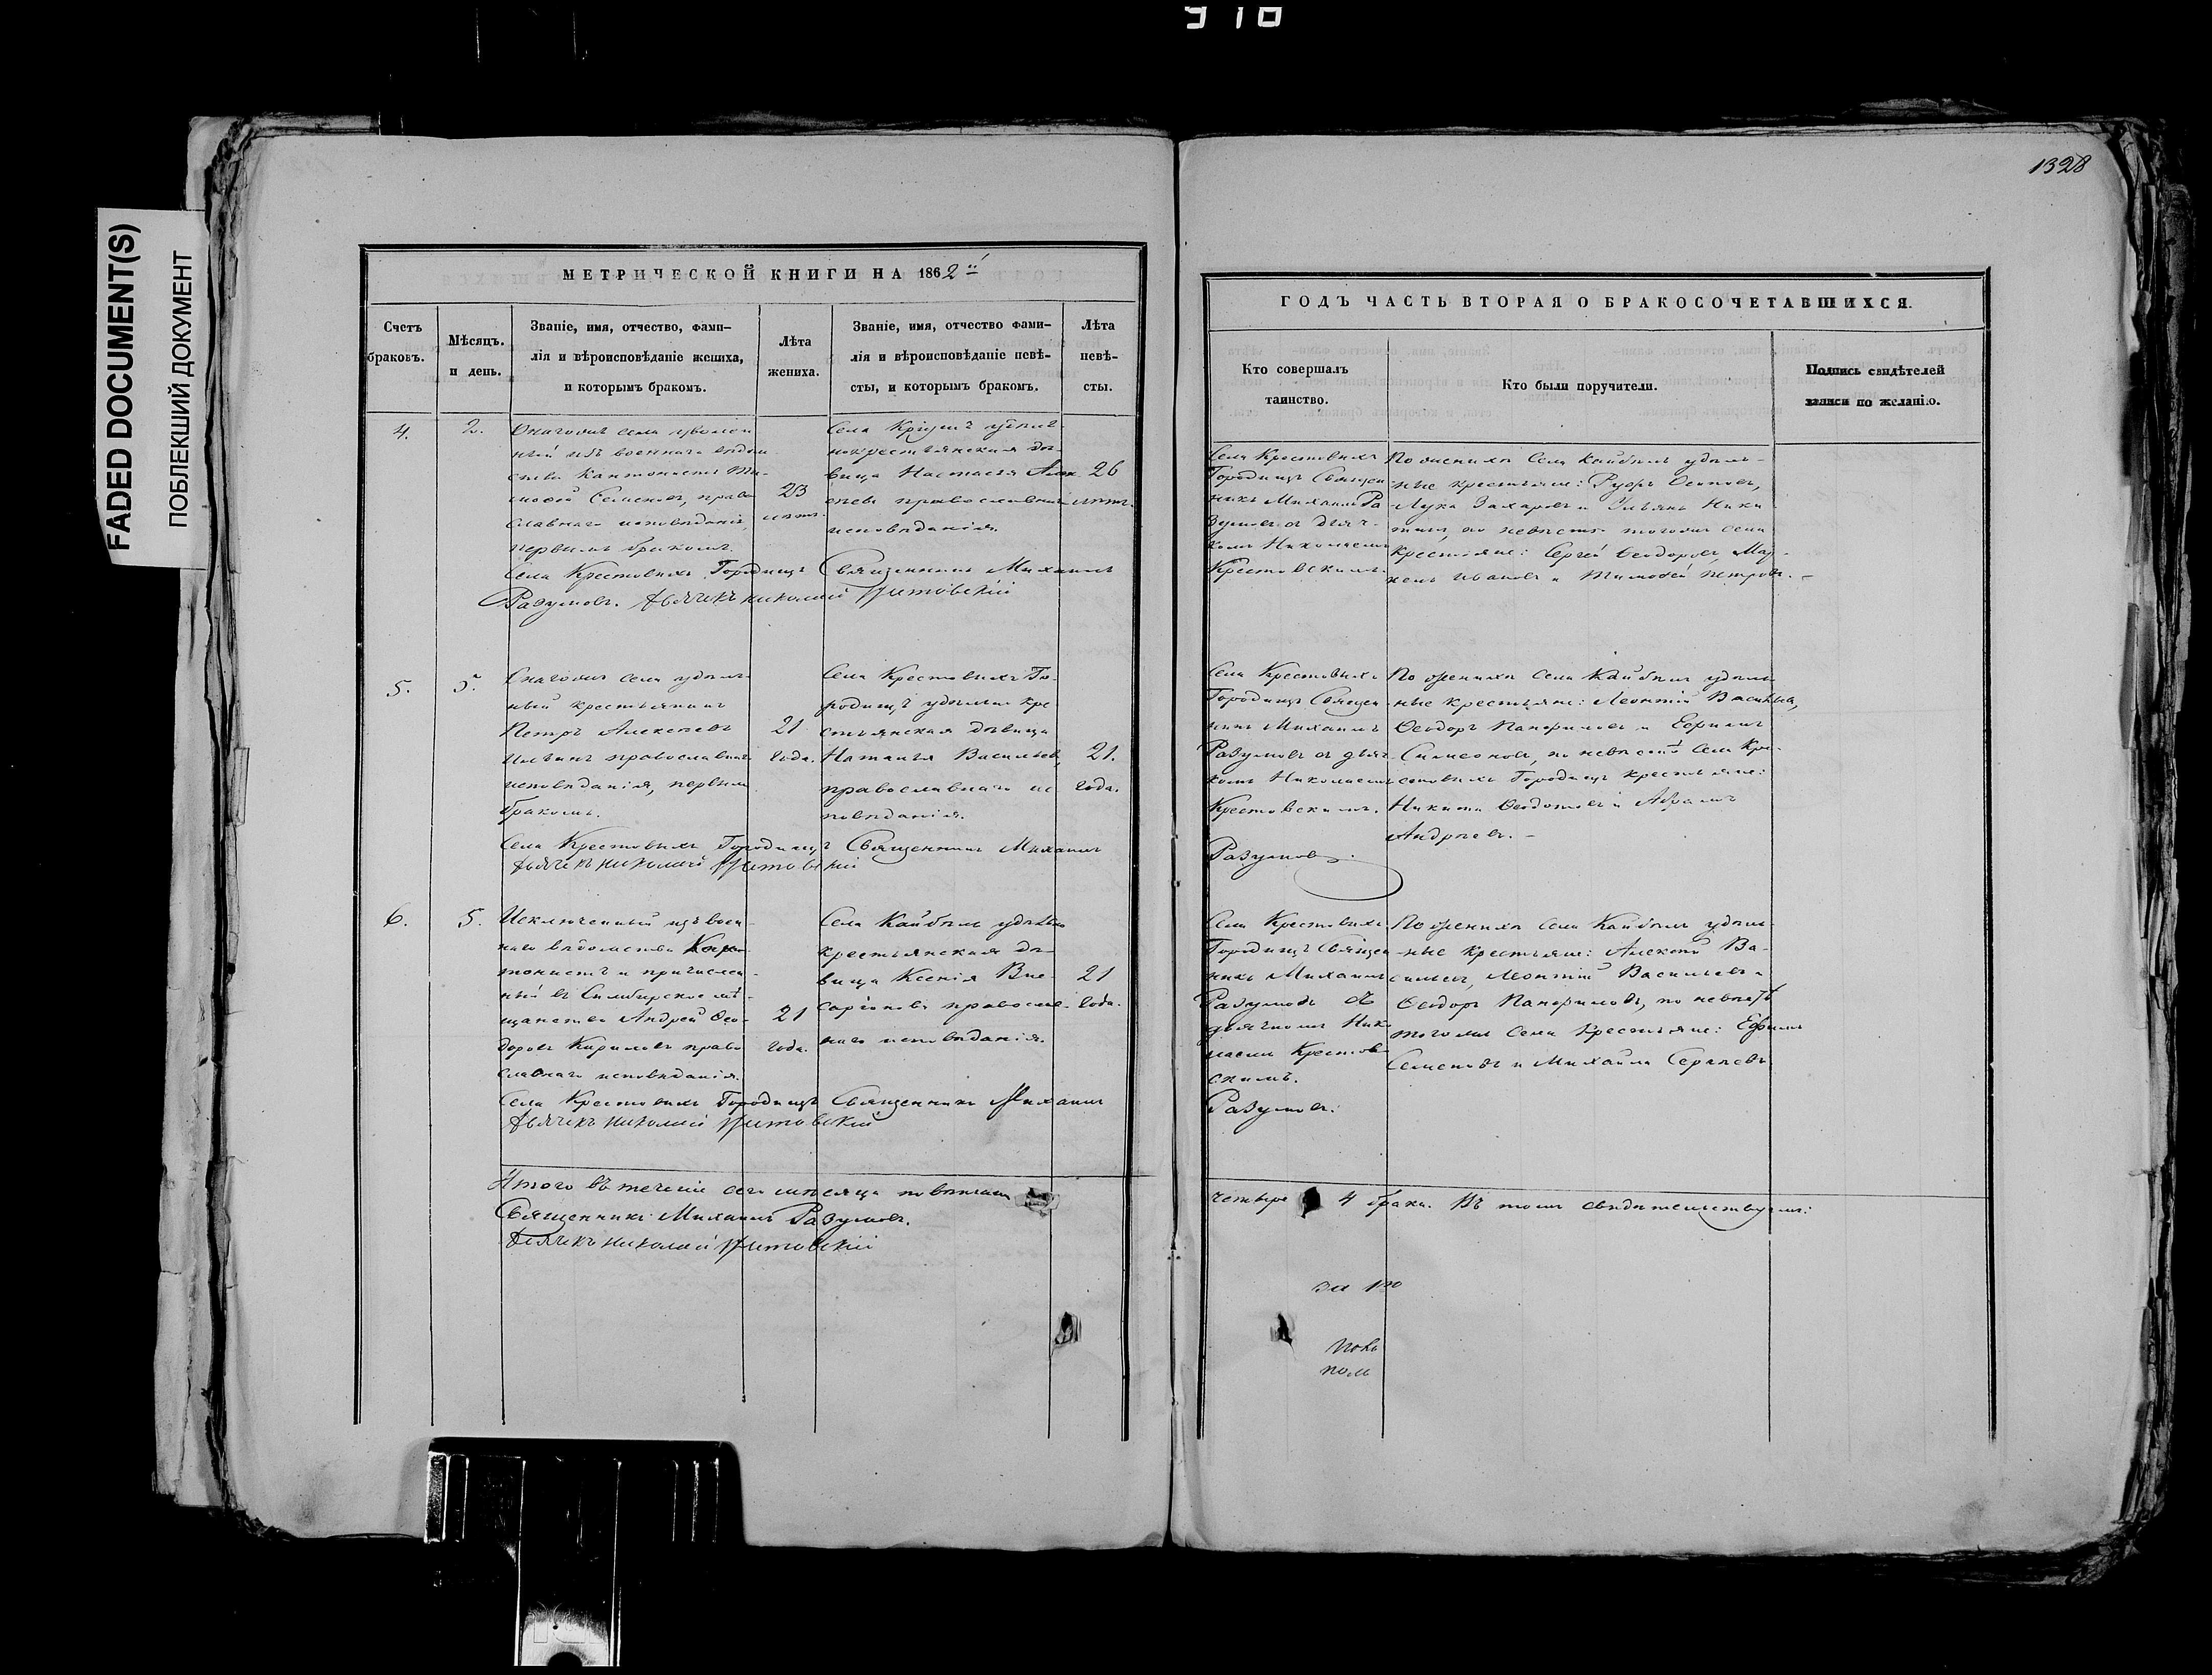 918
FADED DOCUMENT(S)
ПОБЛЕКШИЙ ДОКУМЕНТ
1328
МЕТРИЧЕСКОЙ КНИГИ НА 1862й
Счетъ
браковъ.
Мѣсяцъ.
и день.
Званіе, имя, отчество, фами-
лія и вѣроисповѣданіе жениха,
и которымъ бракомъ.
Лѣта
жениха.
Званіе, имя, отчество фами-
лія и вѣроисповѣданіе невѣ-
сты, и которымъ бракомъ.
Лѣта
невѣ-
сты.
4.
2.
Онагожъ села уволен
ный изъ военнаго ведом
ства Кантонистъ Ти-
мофей Семеновъ, право
славнаго исповѣданія,
первымъ бракомъ.
23
лѣтъ.
Села удѣль
нокрестьянская дѣ-
вица Настасья
православнаго
исповѣданія.
26
лѣтъ.
Села Крестовыхъ Городищъ Священникъ Михаилъ
Разумовъ. Дьячекъ Николай
5.
5.
Онагожъ села удѣль
ный крестьянинъ
Петръ Алексѣевъ
православнаго
исповѣданія, первымъ
бракомъ.
21
года.
Села Крестовыхъ Го-
родищъ удѣльно кре
стьянская дѣвица
Наталья Васильева,
православнаго ис
повѣданія.
21.
года.
Села Крестовыхъ Городищъ Священникъ Михаилъ
Дьячекъ Николай
6.
5.
Исключенный изъ воен
наго вѣдомства Кан
тонистъ и причислен-
ный въ Симбирское мѣ-
щанство Андрей Ѳео-
доровъ Кириловъ право
славнаго исповѣданія.
21
года.
Села Кайбелъ удѣльно
крестьянская дѣ-
вица Ксенія Вис-
саріонова православ-
наго исповѣданія.
21
года.
Села Крестовыхъ Городищъ Священникъ Михаилъ
Дьячекъ Николай
Итого въ теченіе сего мѣсяца повѣнчано
Священникъ Михаилъ Разумовъ.
Дьячекъ Николай
ГОДЪ ЧАСТЬ ВТОРАЯ О БРАКОСОЧЕТАВШИХСЯ.
Кто совершалъ
таинство.
Кто были поручители.
Подпись свидѣтелей
записи по желанію.
Села Крестовыхъ
Городищъ Священ
никъ Михаилъ Ра
зумовъ съ дьяч-
комъ Николаемъ
Крестовскимъ.
По женихѣ Села Кайбелъ удѣль-
ные крестьяне: Осиповъ,
Лука Захаровъ и Ульянъ Ники
тинъ, по невѣстѣ тогожъ села
крестьяне: Сергѣй Ѳеодоровъ,
Ивановъ и Тимофей Петровъ. –
Села Крестовыхъ
Городищъ Священ
никъ Михаилъ
Разумовъ съ дьяч
комъ Николаемъ
Крестовскимъ.
Разумовъ.
По женихѣ Села Кайбелъ удѣль
ные крестьяне: Леонтій Васильевъ,
Ѳеодоръ Панфиловъ и Ефимъ
Симеоновъ, по невѣстѣ Села Кре-
стовыхъ Городищъ крестьяне:
Никита и Абрамъ
Андреевъ. –
Села Крестовыхъ
Городищъ Священ
никъ Михаилъ
Разумовъ съ
дьячкомъ Нико
лаемъ Крестов
скимъ.
Разумовъ.
По женихѣ Села Кайбелъ удѣль-
ные крестьяне: Алексѣй Ва-
сильевъ, Леонтій Васильевъ и
Ѳеодоръ Панфиловъ, по невѣстѣ
тогожъ Села крестьяне: Ефимъ
Семеновъ и Михайла Сергѣевъ
четыре 4 брака. Въ томъ свидѣтельствуемъ: